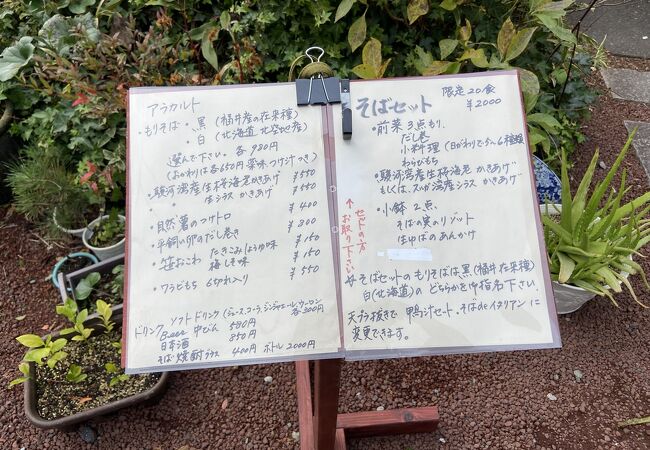 アラカルト
・もりそば・黒（福井産の在来種）
・白（北海道 北空知産）
選んで下さい。各980円
（おかわりは各650円 薬味・つけ汁つき）
・駿河湾産生桜海老かきあげ ¥550
〃 生シラス かきあげ ¥550
・自然薯のつけトロ ¥400
・平飼の卵のだし巻 ¥800
・笹おこわ たきこみしょうゆ味 ¥150
梅しそ味 ¥150
・ワラビもち 6切れ入り ¥550
ドリンク ソフトドリンク（ジュース、コーラ、ジンジャエール、ウーロン 各300円
Beer 中びん 580円
日本酒 850円
そば焼酎グラス 400円 ボトル 2000円
そばセット 限定20食 ¥2000
・前菜3点もり、
だし巻
小料理（日がわりで5〜6種類
わらびもち
・駿河湾産生桜海老 かきあげ
もしくは、スルガ湾産シラス かきあげ
・小鉢2点、
そばの実のリゾット
生ゆばのあんかけ
↑セットの方
お取り下さい
そばセットのもりそばは黒（福井在来種）
白（北海道）のどちらかを御指名下さい。
天プラ抜きで鴨汁セット・そばdeイタリアンに
変更できます。